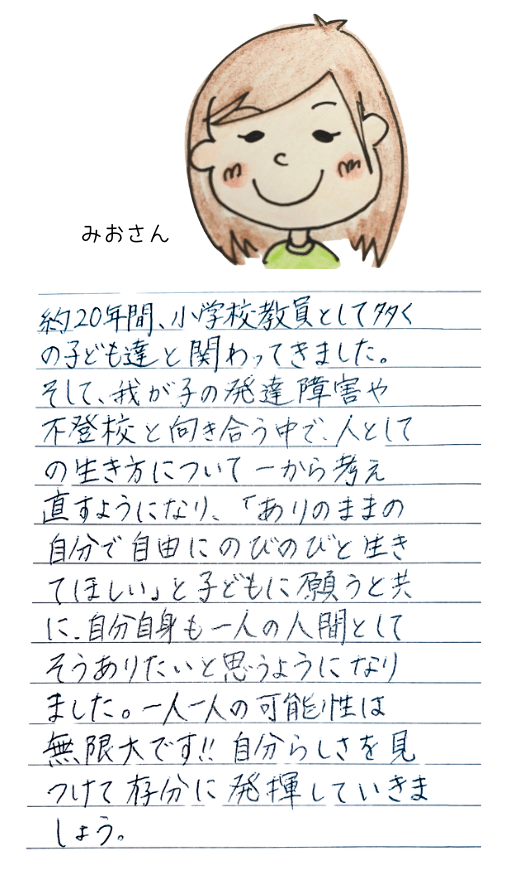 みおさん
約20年間、小学校教員として多く
の子ども達と関わってきました。
そして、我が子の発達障害や
不登校と向き合う中で、人として
の生き方について一から考え
直すようになり、「ありのままの
自分で自由にのびのびと生き
てほしい」と子どもに願うと共
に、自分自身も一人の人間として
そうありたいと思うようになり
ました。一人一人の可能性は
無限大です!! 自分らしさを見
つけて存分に発揮していきま
しょう。